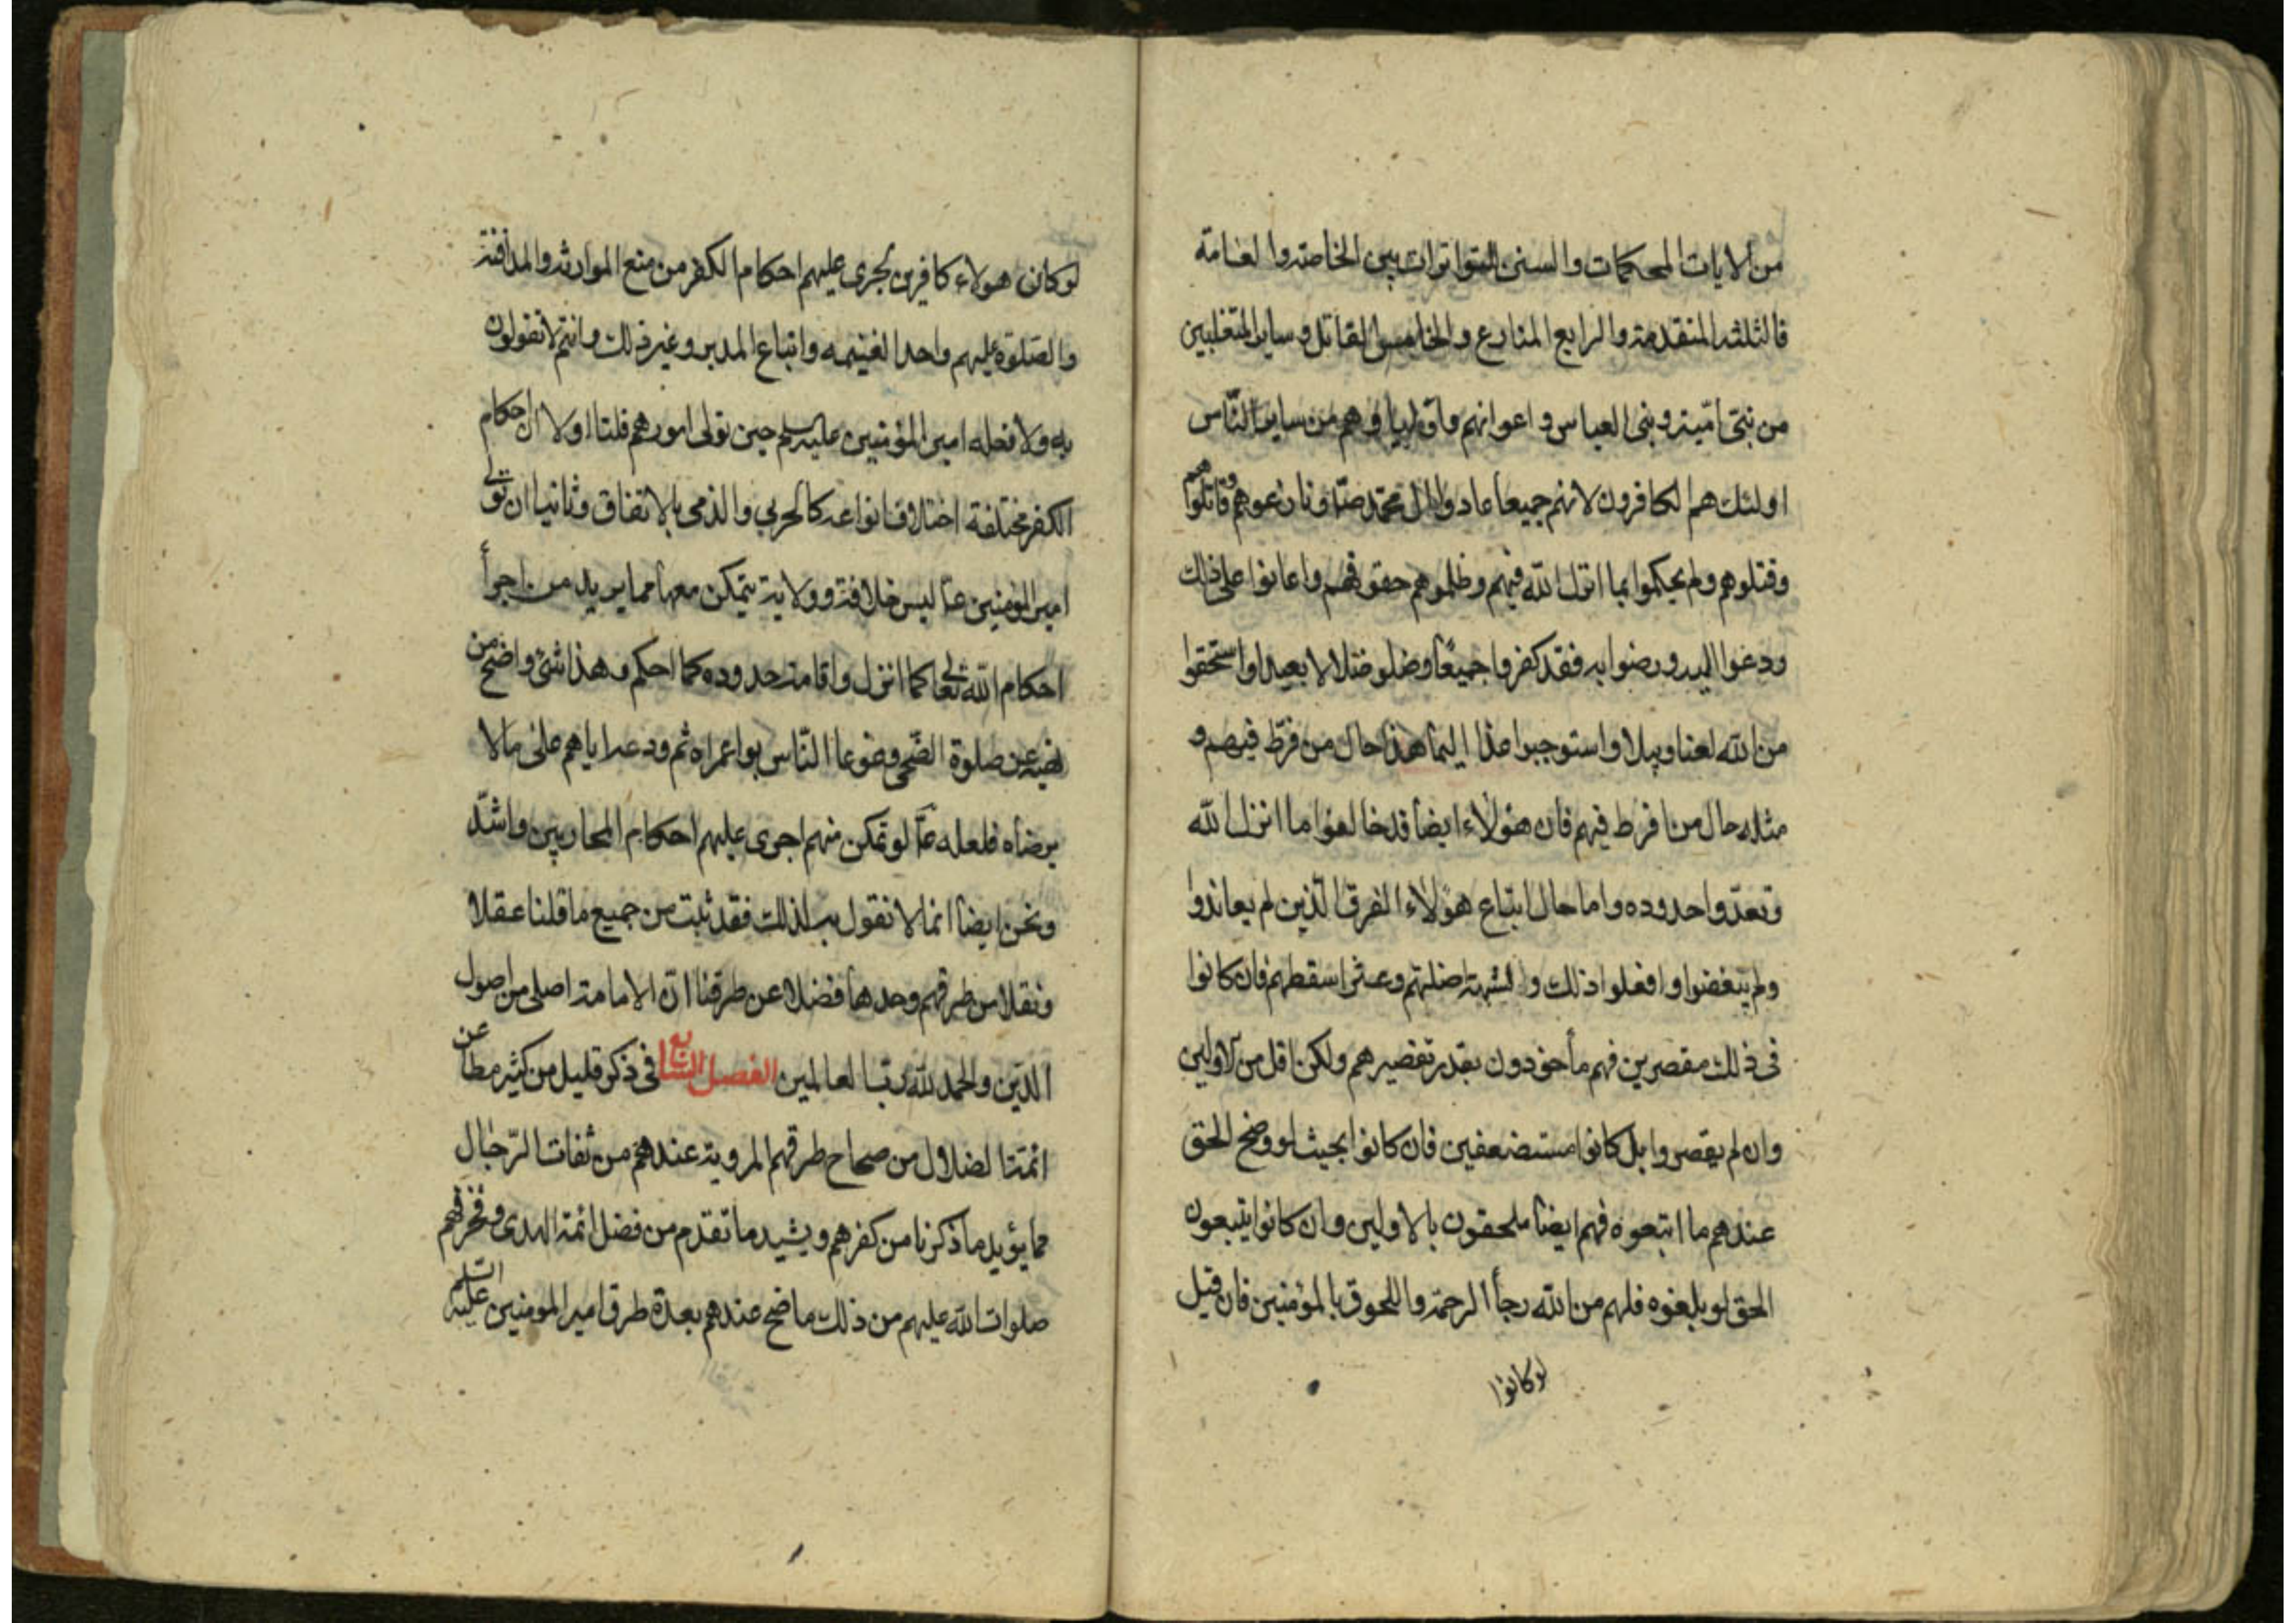 من الايات المحكمات والسنن المتواترات بين الخاصة والعامة
فالثلثة المتقدمة والرابع المنازع والخامس القاتل وساير المتغلبين
من بنى اميّة وبنى العباس واعوانهم واوليا وهم من ساير النّاس
اولئك هم الكافرون لانهم جميعا عادوا ال محمّد صلّا ونازعوهم وقاتلوهم
وقتلوهم ولم يحكموا بما انزل اللّه فيهم وظلموهم حقوقهم واعانوا على ذلك
ودعوا اليه ورضوا به فقد كفروا جميعًا وضلو ضلالا بعيدا واستحقوا
من اللّه لعنا وبيلا واستوجبوا عذابا اليما هذا حال من فرّط فيهم و
مثله حال من افرط فيهم فان هؤلاء ايضا قد خالفوا ما انزل اللّه
وتعدّوا حدوده واما حال اتباع هؤلاء الفرق الّذين لم يعاندوا
ولم يبغضوا وافعلوا ذلك والشبهة اضلتهم وعثرا سقطهم فان كانوا
فى ذلك مقصرين فهم مأخوذون بقدر تقصيرهم ولكن اقل من الاولين
وان لم يقصروا بل كانوا مستضعفين فان كانوا بحيث لو وضح الحق
عندهم ما اتبعوه فهم ايضا ملحقون بالاولين وان كانوا يتبعون
الحق لو بلغوه فلهم من اللّه رجأ الرحمة واللحوق بالمؤمنين فان قيل
لو كانوا
لو كان هولاء كافرين تجرى عليهم احكام الكفر من منع الموارثة والمدافنة
والصّلوة عليهم واخذ الغنيمه واتباع المدبر وغير ذلك وانتم لا تقولون
به ولا فعله امير المؤمنين عليه سلم حين تولى امورهم قلنا اولا ان احكام
الكفر مختلفة اختلاف انواعه كالحربي والذمى بالاتفاق وثانيا ان تولى
امير المؤمنين عا ليس خلافة وولاية يتمكن معها مما يريد من اجرأ
احكام اللّه تعا كما انزل واقامة حدوده كما احكم وهذا شئ واضح من
نهيه عن صلوة الضّحى وضوعا النّاس بواعمراه ثم ودعه اياهم على مالا
يرضاه فلعله عا لو تمكن منهم اجرى عليهم احكام المحاربين واشدّ
ونحن ايضا انما لا نقول بذلك فقد ثبت من جميع ما قلنا عقلا
ونقلا من طرقهم وحدها فضلا عن طرقنا انّ الامامة اصلى من اصول
الدّين والحمد للّه ربّ العالمين الفصل السّابع فى ذكر قليل من كثير مطاعن
ائمّة الضلال من صحاح طرقهم المروية عندهم من ثقات الرّجال
مما يؤيد ما ذكرنا من كفرهم ويشيد ما تقدم من فضل ائمة الهدى وفخرهم
صلوات اللّه عليهم من ذلك ما صح عندهم بعدة طرق امير المومنين عليه السلم